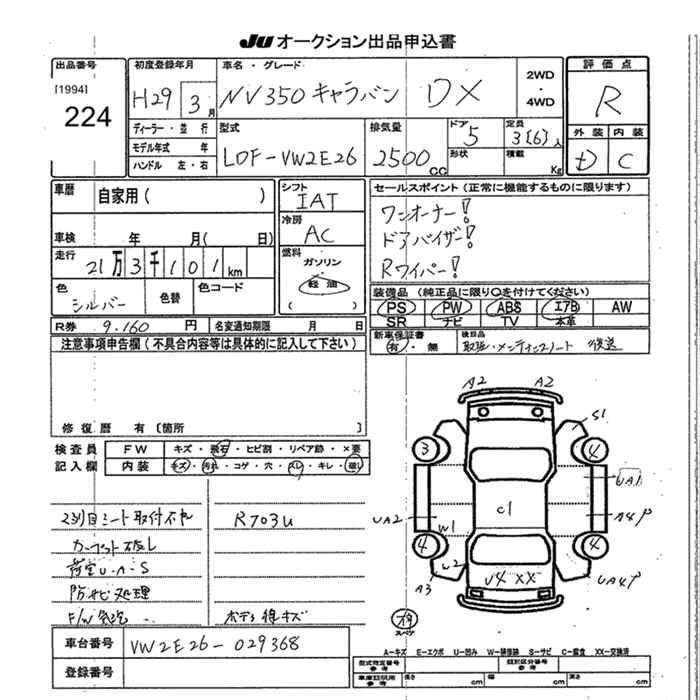 JU オークション出品申込書
出品番号
[1994]
224
初度登録年月
H29 3月
車名・グレード
NV350 キャラバン DX
2WD
・
4WD
評価点
R
ディーラー・並行
モデル年式 年
ハンドル 左・右
型式
LDF-VW2E26
排気量
2500cc
ドア
5
形状
定員
3(6)人
積載
Kg
外装 内装
D C
車歴
自家用( )
車検 年 月( 日)
走行
21万3千101km
色
シルバー
色替
色コード
シフト
IAT
冷房
AC
燃料
ガソリン
軽油
( )
セールスポイント(正常に機能するものに限ります)
ワンオーナー!
ドアバイザー!
Rワイパー!
装備品(純正品に限り○を付けてください)
PS PW ABS エアB AW
SR ナビ TV 本革
R券 9.160円
名変通知期限 月 日
新車保証書
有・無
後日品
取扱・メンテナンスノート 後送
注意事項申告欄(不具合内容等は具体的に記入して下さい)
修復歴 有〔箇所 〕
検査員
記入欄
FW キズ・飛石・ヒビ割・リペア跡・×要
内装 キズ・汚れ・コゲ・穴・スレ・キレ・破し
2列目シート取付不良
カーペット破レ
荷室U・A・S
防サビ処理
R703U
ボデー 線キズ
A2 A2
S1
3 4
UA1
UA2 W1
C1
A4P
4 4
W2
A3
U4 XX
UA4P
スペア
A-キズ E-エクボ U-凹み W-補修跡 S-サビ C-腐食 XX-交換済
車台番号 VW2E26-029368
登録番号
型式指定番号
参考
類別区分番号
参考
車庫証明用
参考
長さ cm 幅 cm 高さ cm